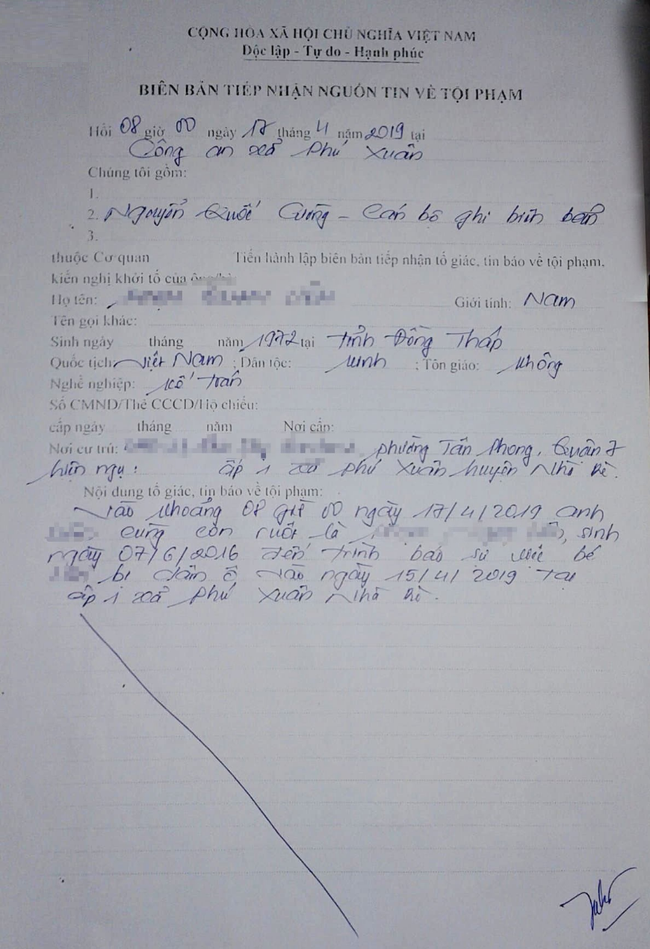 CỘNG HÒA XÃ HỘI CHỦ NGHĨA VIỆT NAM
Độc lập - Tự do - Hạnh phúc
BIÊN BẢN TIẾP NHẬN NGUỒN TIN VỀ TỘI PHẠM
Hồi 08 giờ 00 ngày 17 tháng 4 năm 2019 tại
Công an xã Phú Xuân
Chúng tôi gồm:
1.
2. Nguyễn Quốc Cường - Cán bộ ghi biên bản
3.
thuộc Cơ quan Tiến hành lập biên bản tiếp nhận tố giác, tin báo về tội phạm,
kiến nghị khởi tố của ông/bà:
Họ tên: Giới tính: Nam
Tên gọi khác:
Sinh ngày tháng năm 1972 tại tỉnh Đồng Tháp
Quốc tịch: Việt Nam ; Dân tộc: Kinh ; Tôn giáo: Không
Nghề nghiệp:
Số CMND/Thẻ CCCD/Hộ chiếu:
cấp ngày tháng năm Nơi cấp:
Nơi cư trú: , phường Tân Phong, Quận 7
hiện ngụ: ấp 1 xã Phú Xuân huyện Nhà Bè.
Nội dung tố giác, tin báo về tội phạm:
Vào khoảng 08 giờ 00 ngày 17/4/2019 anh
cùng con ruột là , sinh
ngày 07/6/2016 đến trình báo sự việc bé
bị dâm ô vào ngày 15/4/2019 tại
ấp 1 xã Phú Xuân Nhà Bè.